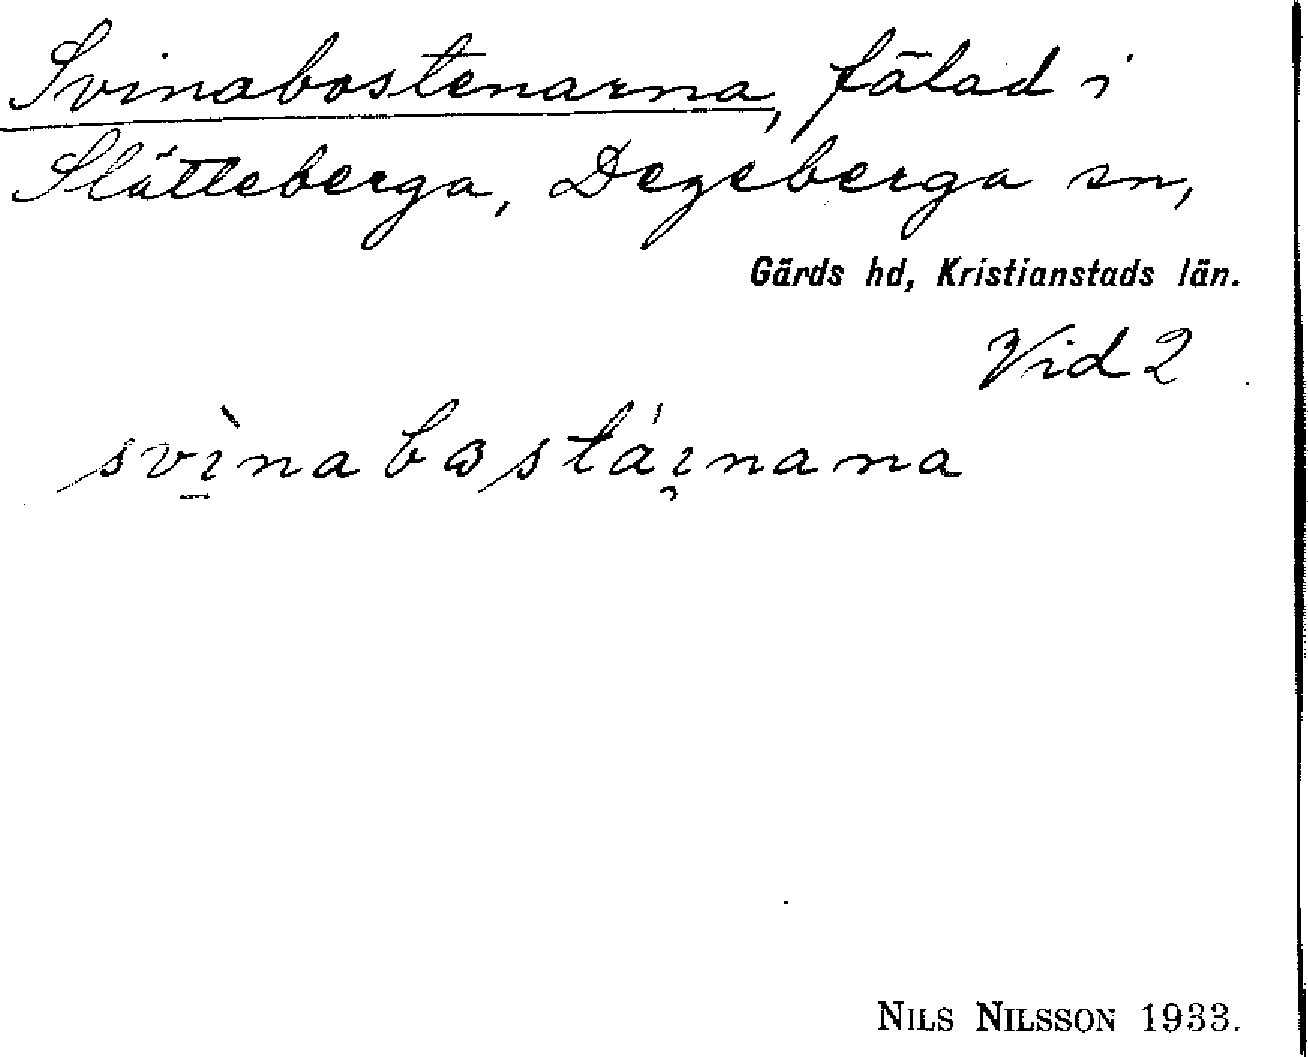 Svinabostenarna, fälad i
Slätteberga, Degeberga sn,
Gärds hd, Kristianstads län.
Vid 2
NILS NILSSON 1933.